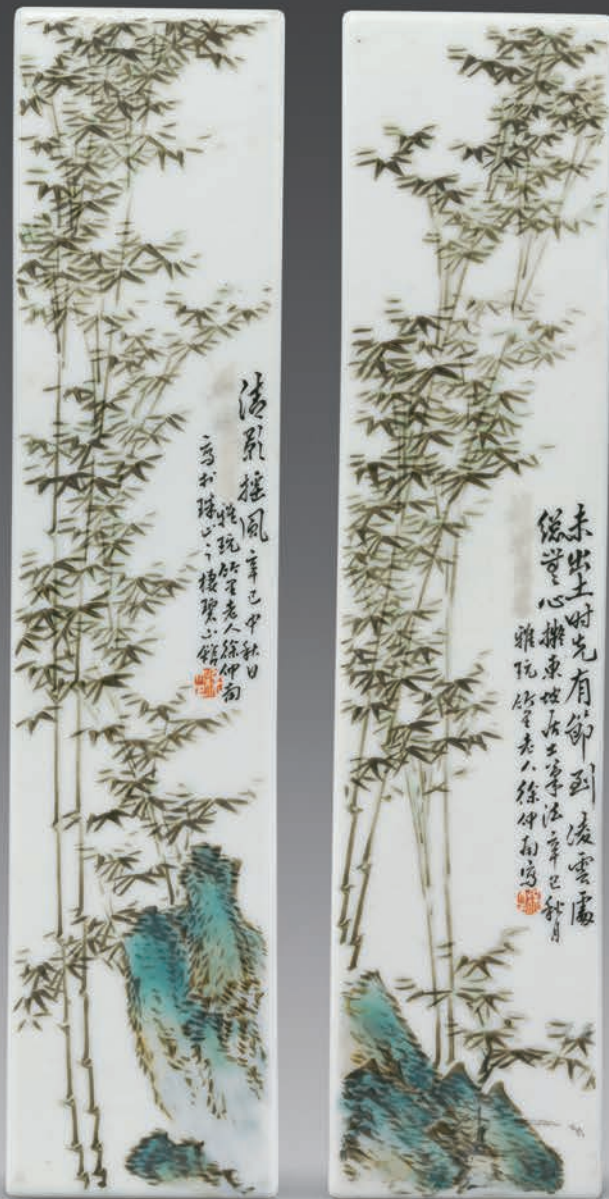 未出土时先有節到凌雲處
總無心擬東坡居士筆法辛巳秋月
雅玩竹里老人徐仲南寫
清影摇風辛巳中秋日
雅玩竹里老人徐仲南
寫於珠山之棲碧山館